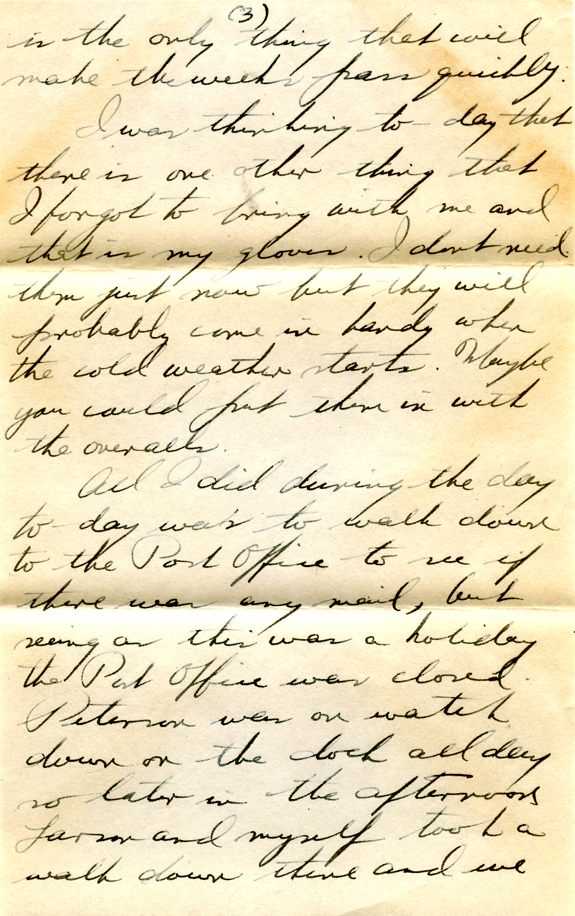 (3)
is the only thing that will
make the weeks pass quickly.
I was thinking to-day that
there is one other thing that
I forgot to bring with me and
that is my gloves. I dont need
them just now but they will
probably come in handy when
the cold weather starts. Maybe
you could put them in with
the overalls.
All I did during the day
to-day was to walk down
to the Post Office to see if
there was any mail, but
seeing as this was a holiday
the Post Office was closed.
Peterson was on watch
down on the dock all day
so later in the afternoon
Larson and myself took a
walk down there and we